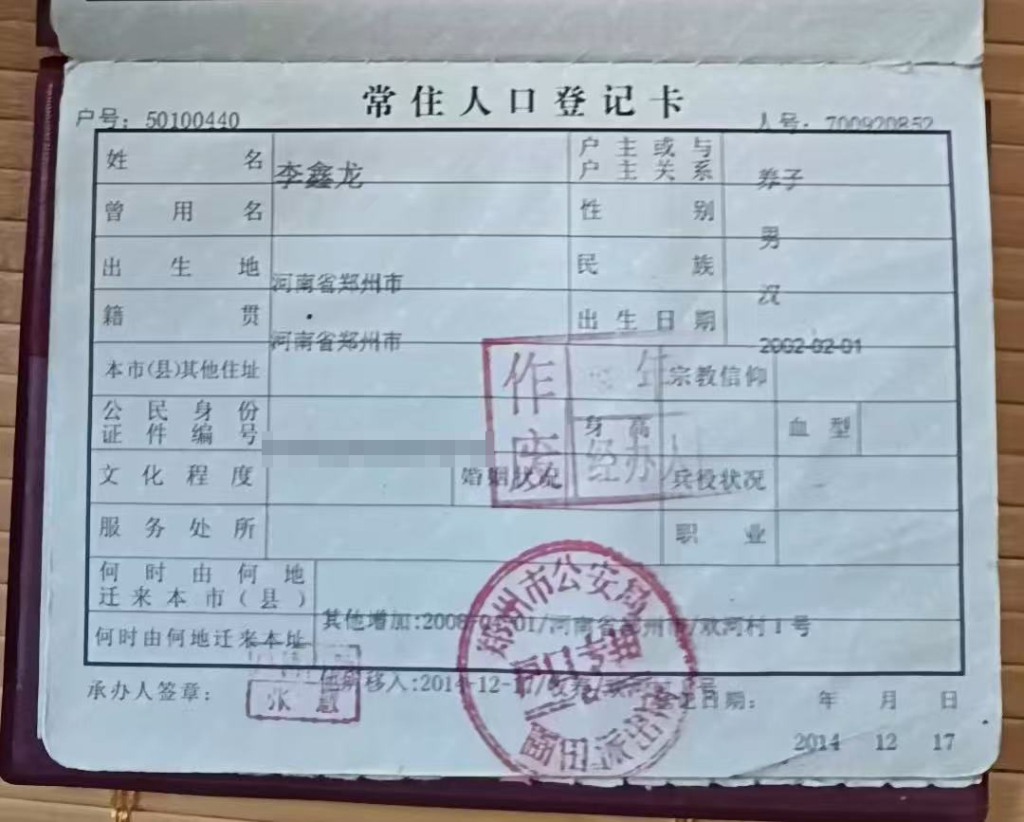 常住人口登记卡
户号: 50100440 人号: 700920852
姓名 李鑫龙 户主或与户主关系 养子
曾用名 性别 男
出生地 河南省郑州市 民族 汉
籍贯 河南省郑州市 出生日期 2002-02-01
本市(县)其他住址 宗教信仰
公民身份证件编号 身高 血型
文化程度 婚姻状况 兵役状况
服务处所 职业
何时由何地迁来本市(县) 其他增加:2008 01/河南省 州市/双河村1号
何时由何地迁来本址 移入:2014-12-17/
承办人签章: 登记日期: 年 月 日
2014 12 17
作废
年
经办人
张慧
郑州市公安局
户口专用
派出所